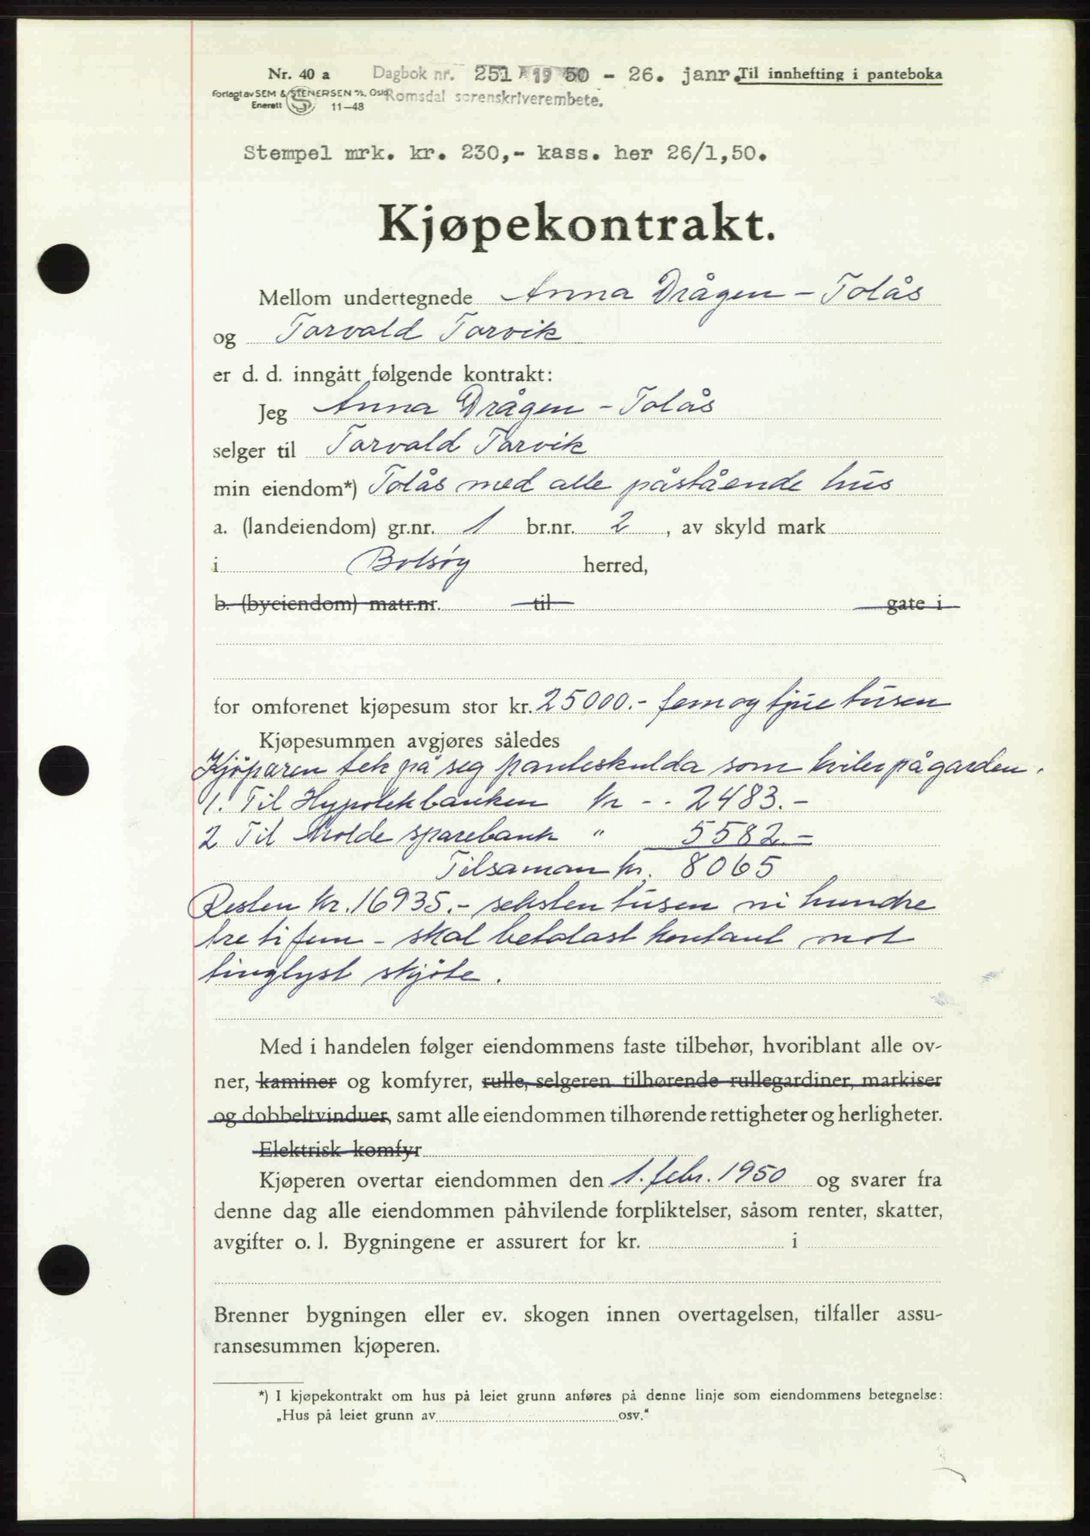 Nr. 40 a Dagbok nr. 251 1950 - 26. janr. Til innhefting i panteboka
Forlagt av SEM & STENERSEN A/S, Oslo Romsdal sorenskriverembete.
Enerett 11-48
Stempel mrk. kr. 230,- kass. her 26/1,50.
Kjøpekontrakt.
Mellom undertegnede Anna Drågen - Tolås
og Torvald Torvik
er d. d. inngått følgende kontrakt:
Jeg Anna Drågen - Tolås
selger til Torvald Torvik
min eiendom*) Tolås med alle påstående hus
a. (landeiendom) gr.nr. 1 br.nr. 2, av skyld mark
i Bolsøy herred,
b. (byeiendom) matr.nr. til gate i
for omforenet kjøpesum stor kr. 25000.- fem og tjue tusen
Kjøpesummen avgjøres således
Kjøparen tek på seg panteskulda som kviler på garden.
1. Til Hypotekbanken kr - - 2483.-
2 Til Molde sparebank " 5582.-
Tilsaman kr. 8065
Resten kr. 16935.- seksten tusen ni hundre
tre ti fem - skal betalast kontant mot
tinglyst skjöte.
Med i handelen følger eiendommens faste tilbehør, hvoriblant alle ov-
ner, kaminer og komfyrer, rulle, selgeren tilhørende rullegardiner, markiser
og dobbeltvinduer, samt alle eiendommen tilhørende rettigheter og herligheter.
Elektrisk komfyr
Kjøperen overtar eiendommen den 1. febr. 1950 og svarer fra
denne dag alle eiendommen påhvilende forpliktelser, såsom renter, skatter,
avgifter o. l. Bygningene er assurert for kr. i
Brenner bygningen eller ev. skogen innen overtagelsen, tilfaller assu-
ransesummen kjøperen.
*) I kjøpekontrakt om hus på leiet grunn anføres på denne linje som eiendommens betegnelse:
„Hus på leiet grunn av osv."